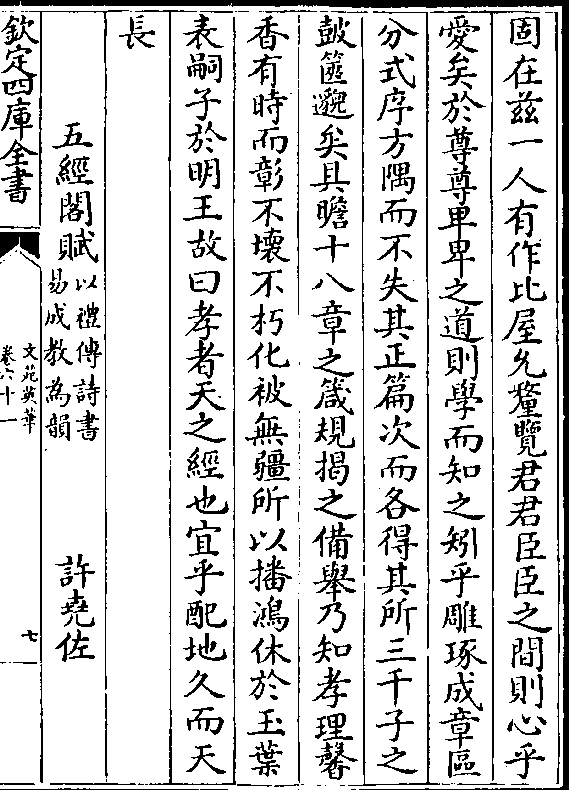 固在兹一人有作比屋允釐覽君君臣臣之間則心乎
愛矣於尊尊卑卑之道則學而知之矧乎雕琢成章區
分式序方隅而不失其正篇次而各得其所三千子之
鼓篋邈矣具瞻十八章之箴規揭之備舉乃知孝理馨
香有時而彰不壞不朽化被無疆所以播鴻休於玉葉
表嗣子於明王故曰孝者天之經也宜乎配地久而天
長
五經閣賦 以禮傳詩書
易成教為韻
許堯佐
欽定四庫全書
文苑英華
卷六十一
七